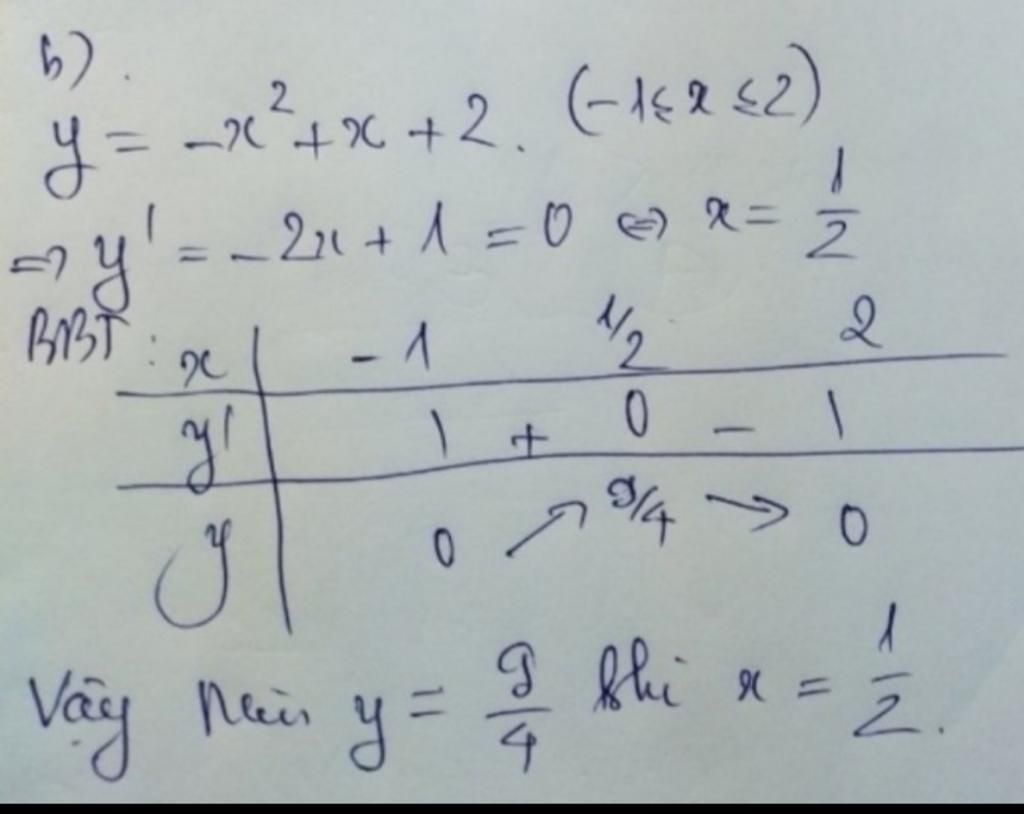 b).
y = -x² + x + 2. (-1 ≤ x ≤ 2)
⇒ y' = -2x + 1 = 0 ⇔ x = 1/2
BBT: x | -1 1/2 2
y' | | + 0 - |
y | 0 ↗ 9/4 → 0
Vậy min y = 9/4 khi x = 1/2.